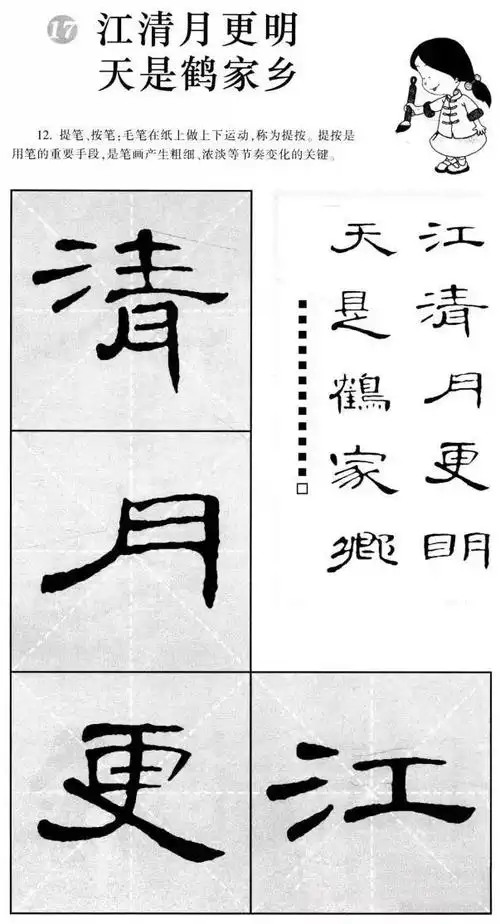 17
江清月更明
天是鹤家乡
12. 提笔、按笔：毛笔在纸上做上下运动，称为提按。提按是
用笔的重要手段，是笔画产生粗细、浓淡等节奏变化的关键。
江清月更明
天是鶴家鄉
江
清
月
更